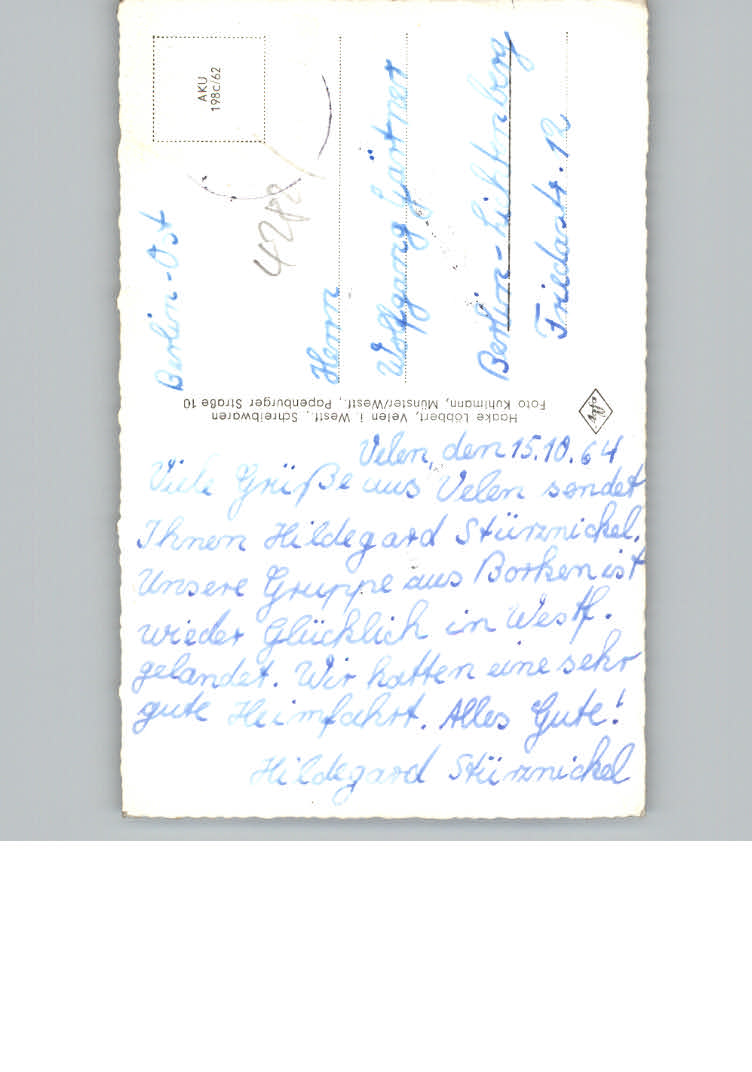 AKU
198c/62
Berlin-Ost
4280
Herrn
Wolfgang Gärtner
Berlin-Lichtenberg
Friedastr. 12
Haake Löbbert, Velen i. Westf., Schreibwaren
Foto Kuhlmann, Münster/Westf., Papenburger Straße 10
Agfa
Velen, den 15.10.64
Viele Grüße aus Velen sendet
Ihnen Hildegard Stürznickel.
Unsere Gruppe aus Borken ist
wieder Glücklich in Westf.
gelandet. Wir hatten eine sehr
gute Heimfahrt. Alles Gute!
Hildegard Stürznickel